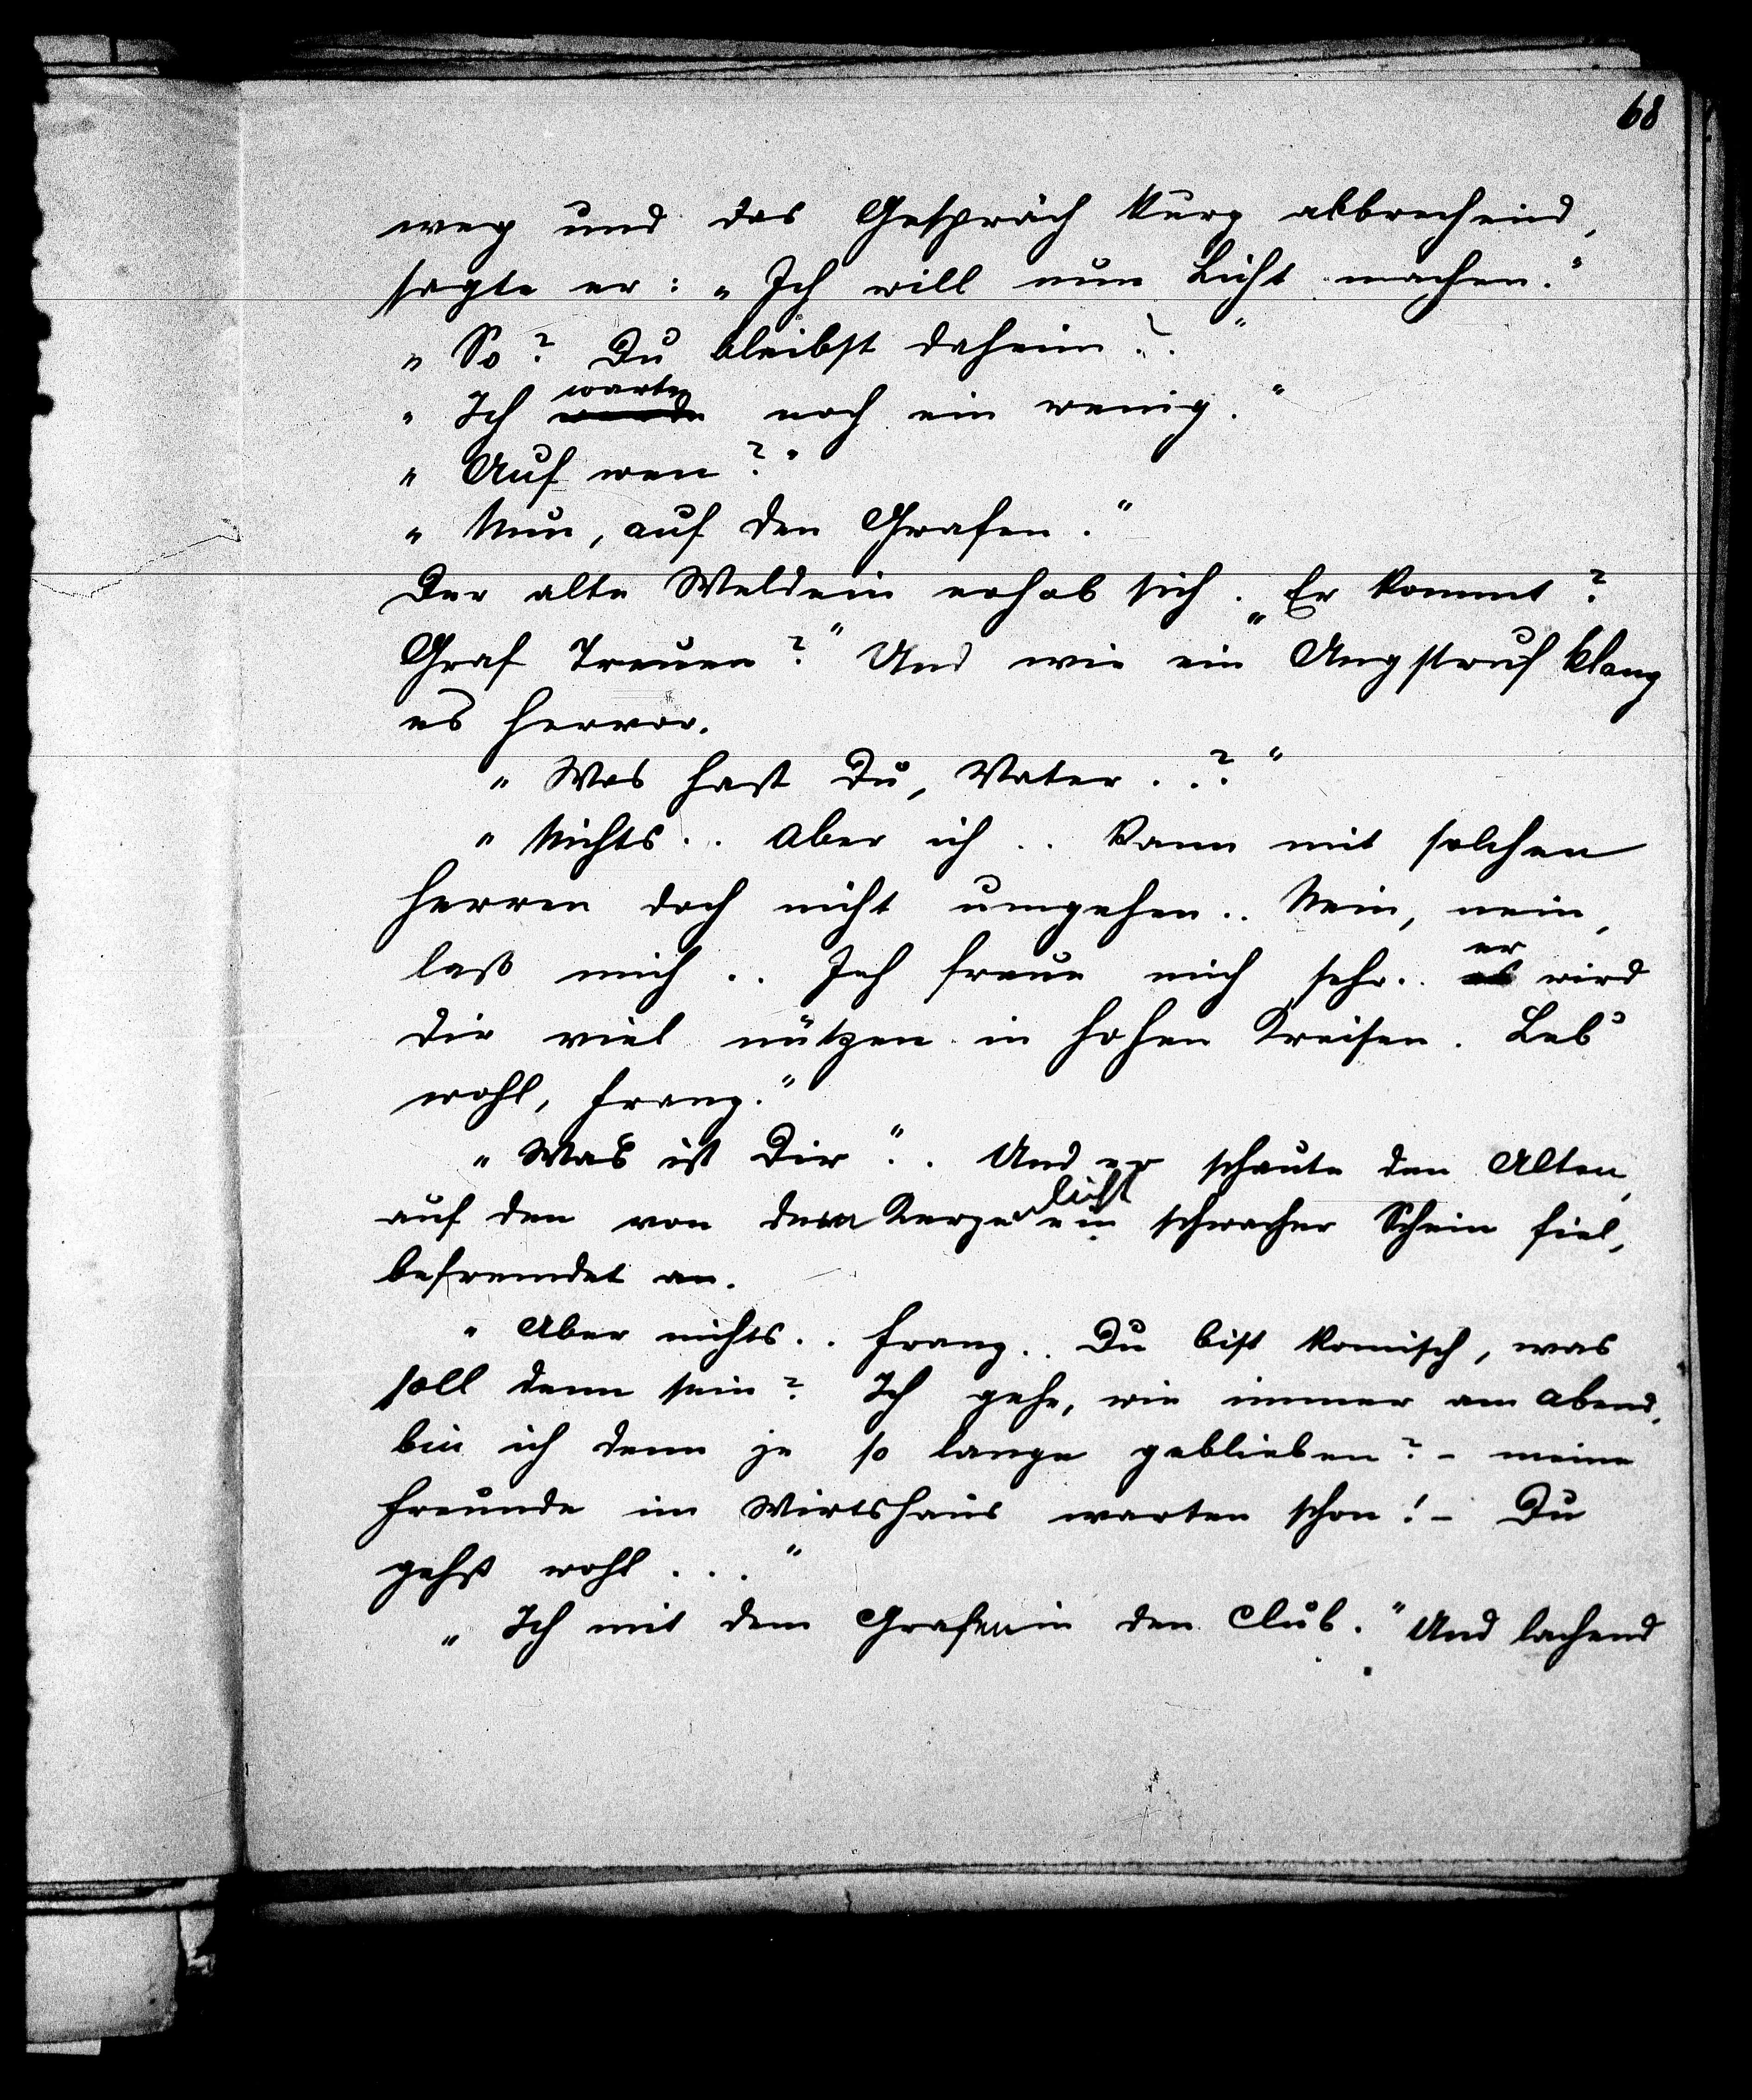 68
weg und das Gespräch kurz abbrechend,
sagte er: „Ich will nun Licht machen."
„So? Du bleibst daheim?."
„Ich warte noch ein wenig."
„Auf wen?"
„Nun, auf den Grafen."
Der alte Weldein erhob sich. „Er kommt?
Graf Treuen?" Und wie ein Angstruf klang
es hervor.
„Was hast Du, Vater..?"
„Nichts.. Aber ich.. kann mit solchen
Herren doch nicht umgehen.. Nein, nein,
laß mich.. Ich freue mich sehr.. er wird
Dir viel nützen in hohen Kreisen. Leb'
wohl, Franz."
„Was ist Dir".. Und er schaute den Alten,
auf den von dem Kerzenlicht ein schwacher Schein fiel,
befremdet an.
„Aber nichts.. Franz.. Du bist komisch, was
soll denn sein? Ich gehe, wie immer am Abend,
bin ich denn je so lange geblieben? - meine
Freunde im Wirtshaus warten schon! - Du
gehst wohl..."
„Ich mit dem Grafen in den Club." Und lachend